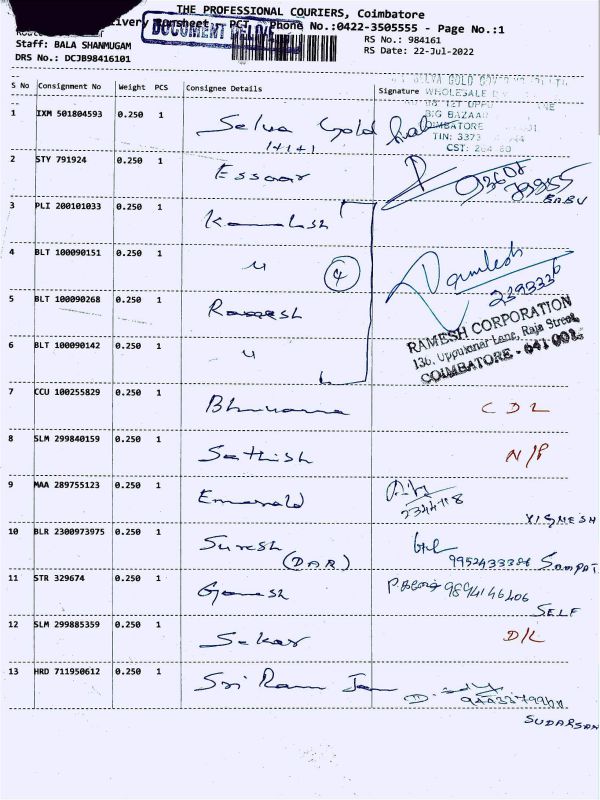 THE PROFESSIONAL COURIERS, Coimbatore
Runsheet - PCT Phone No.:0422-3505555 - Page No.:1
DOCUMENT
RS No.: 984161
Staff: BALA SHANMUGAM RS Date: 22-Jul-2022
DRS No.: DCJB98416101
S No Consignment No Weight PCS Consignee Details Signature
GOLD
WHOLESALE
BIG BAZAAR
COIMBATORE
TIN: 3373
CST:
1 IXM 501804593 0.250 1 Selva Gold
1+1+1
2 STY 791924 0.250 1 Essaar
BABU
3 PLI 200101033 0.250 1 Kamalesh
4 BLT 100090151 0.250 1 4
5 BLT 100090268 0.250 1
2393336
6 BLT 100090142 0.250 1
RAMESH CORPORATION
136, Uppukinar Lane, Raja Street,
COIMBATORE - 641 001.
7 CCU 100255829 0.250 1 Bhuvana CDL
8 SLM 299840159 0.250 1 Sathish N/P
9 MAA 289755123 0.250 1 Emerald
VIGNESH
10 BLR 2300973975 0.250 1 Suresh
(DAR) 9952433386 SAMPAT
11 STR 329674 0.250 1 Ganesh 9894146406
SELF
12 SLM 299885359 0.250 1 Sekar D/L
13 HRD 711950612 0.250 1 Sri Ram Jam
SUDARSAN